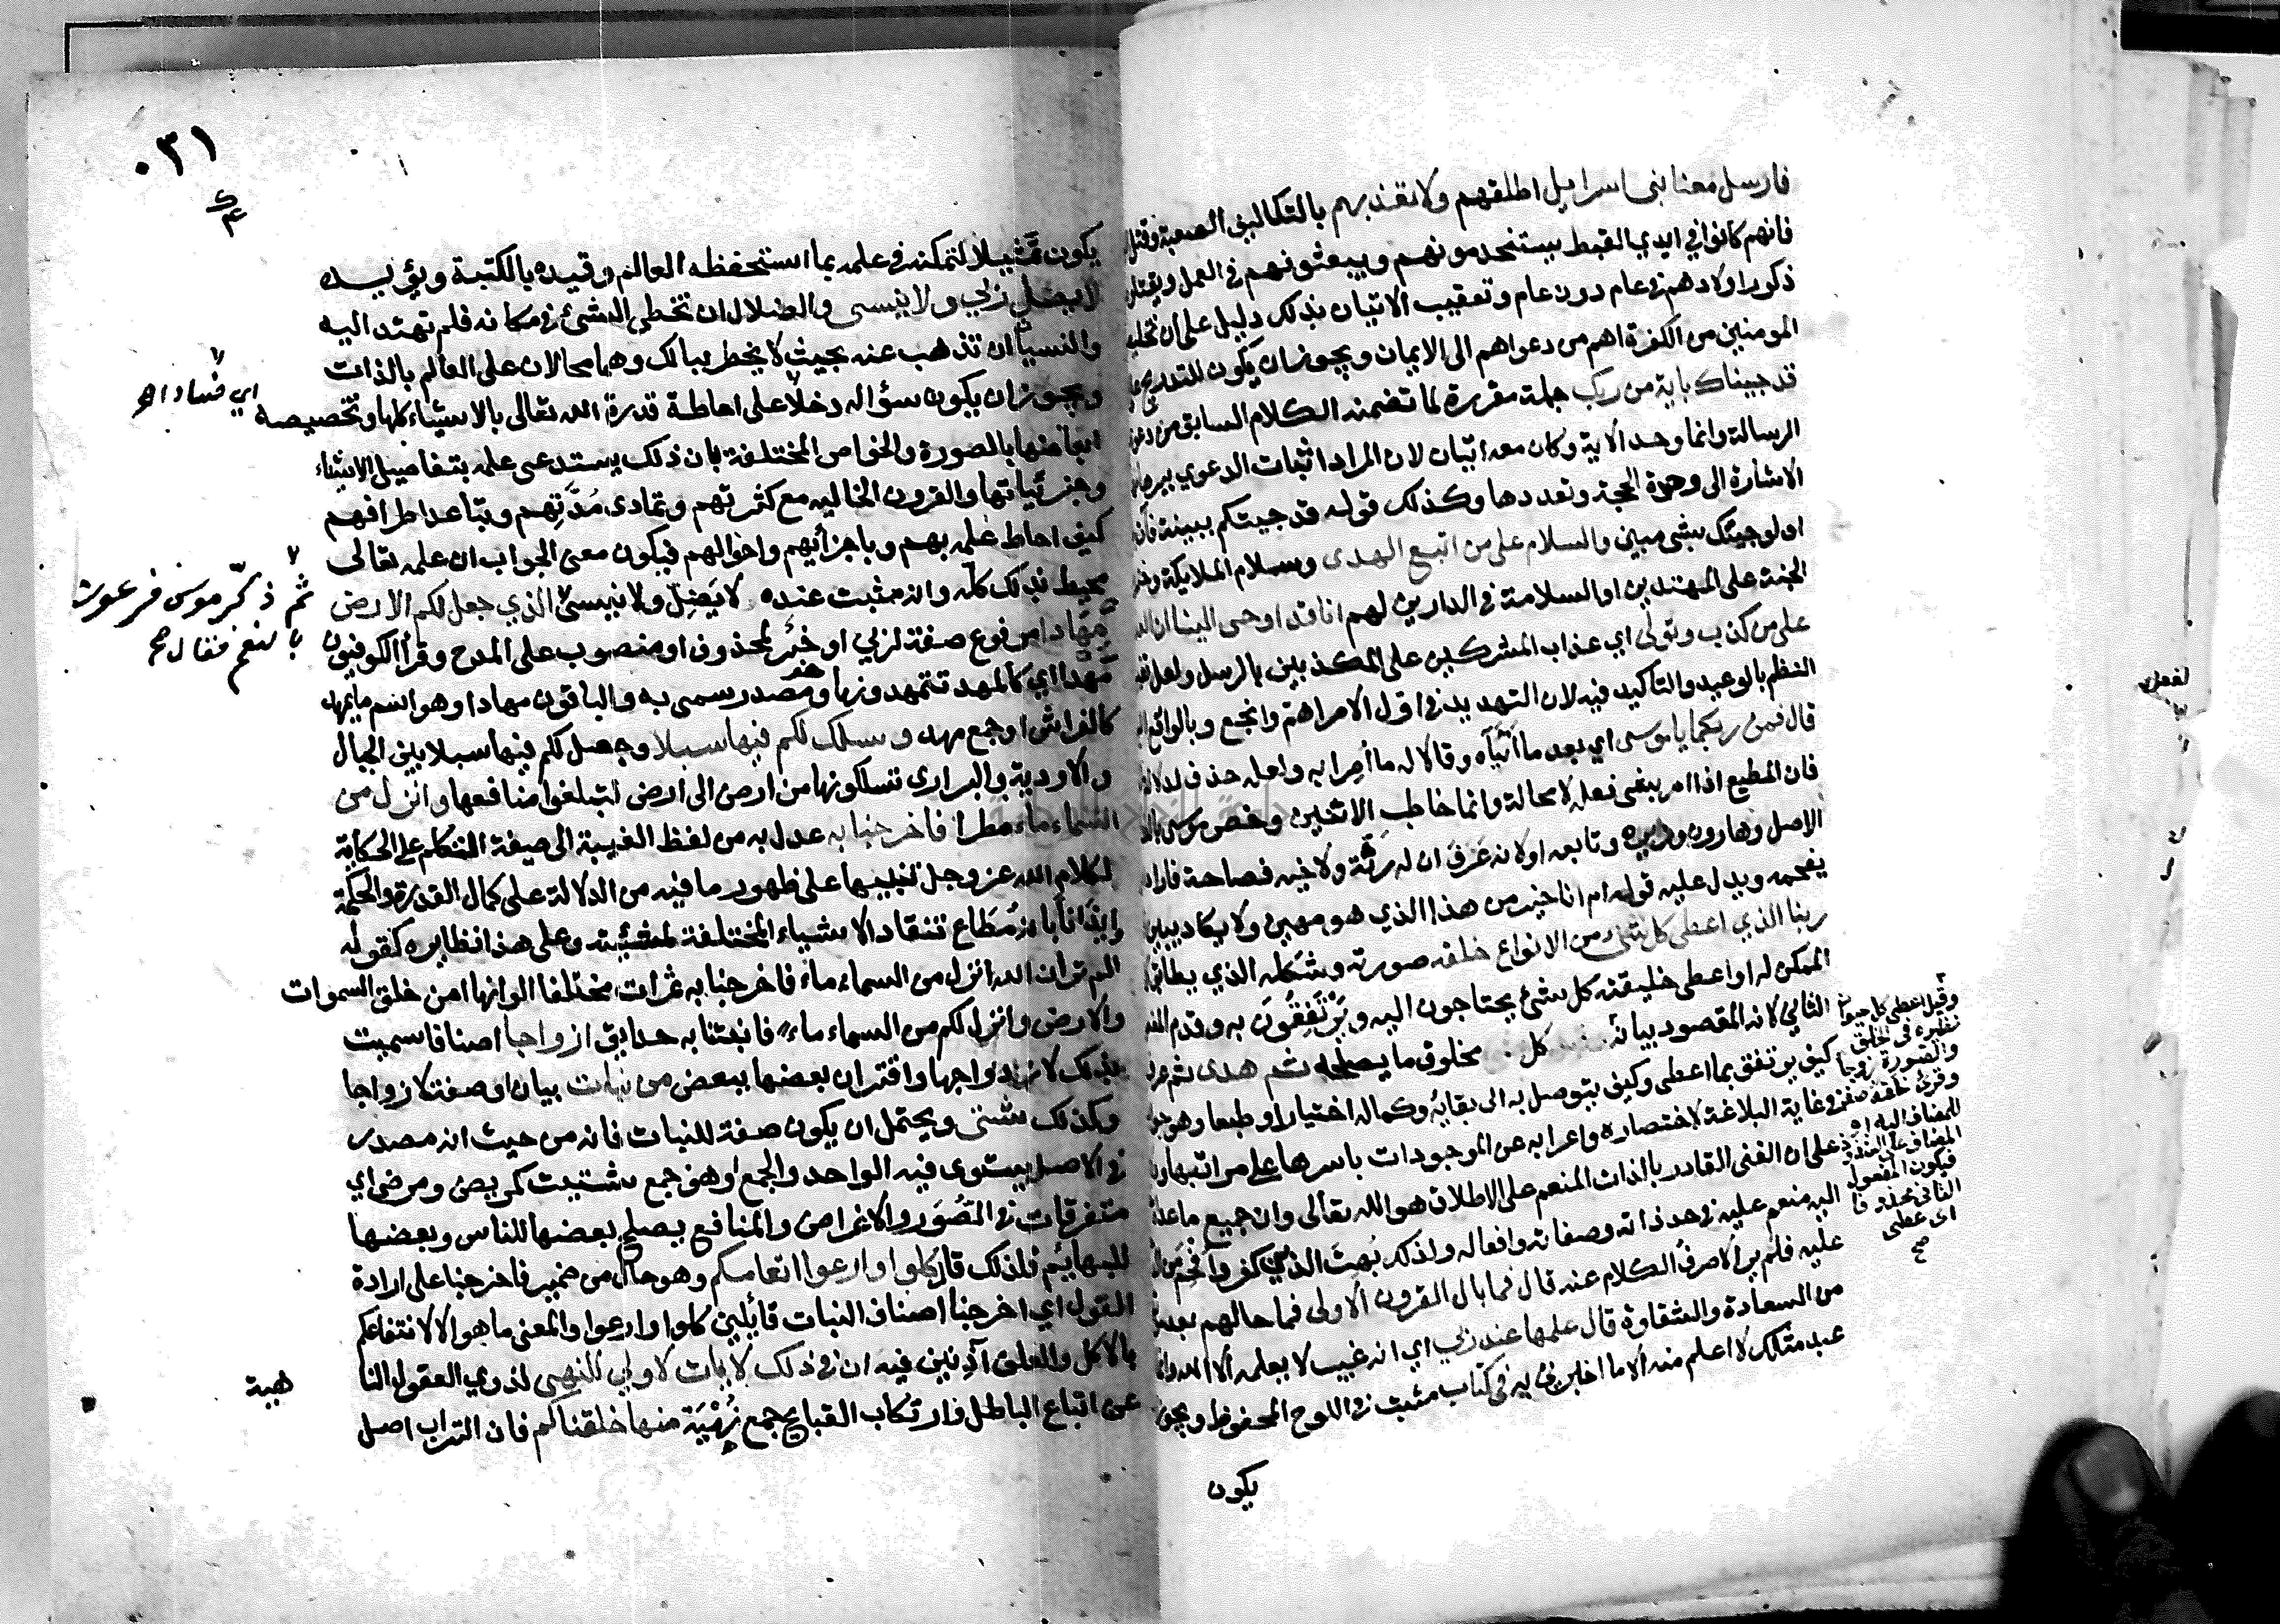 فارسل معنا بنى اسرايل اطلقهم ولا تعذبهم بالتكاليف الصعبة وقتل
فانهم كانوا في ايدي القبط يستخدمونهم ويبعثونهم في العمل ويقتلون
ذكور اولادهم في عام دون عام وتعقيب الاتيان بذلك دليل على ان تخليص
المومنين من الكفرة اهم من دعواهم الى الايمان ويجوز ان يكون للتدريج
قد جيناك باية من ربك جملة مقررة لما تضمنه الكلام السابق من دعوى
الرسالة وانما وحد الاية وكان معه ايتان لان المراد اثبات الدعوي ببرهان
الاشارة الى وحدة الحجة وتعددها وكذلك قوله قد جيتكم ببينة فات
اولو جيتك بشى مبين والسلام على من اتبع الهدى وسلام الملايكة وخزنة
الجنة على المهتدين او السلامة في الدارين لهم انا قد اوحى الينا ان العذاب
على من كذب وتولى اي عذاب المشركين على المكذبين بالرسل ولعل تغيير
النظم بالوعيد والتاكيد فيه لان التهديد في اول الامر اهم وانجع وبالواقع
قال فمن ربكما ياموسى اي بعد ما اتياه وقالا له ما أمرا به ولعله حذف لدلالة
فان المطيع اذا امر بشى فعله لا محالة وانما خاطب الاثنين وخص موسى
الاصل وهارون وزيره وتابعه او لانه عرف ان له رتة ولاخيه فصاحة فاراد
يفحمه ويدل عليه قوله ام انا خير من هذا الذي هو مهين ولا يكاد يبين
ربنا الذي اعطى كل شى من الانواع خلقه صورته وشكله الذي يطابق
الممكن له او اعطى خليقته كل شئ يحتاجون اليه ويرتفقون به وقدم
الثاني لانه المقصود بيانه كل مخلوق ما يصلحه ثم هدى ثم عرفه
كيف يرتفق بما اعطى وكيف يتوصل به الى بقائه وكماله اختيارا او طبعا وهو جواب
في غاية البلاغة لاختصاره واعرابه عن الموجودات باسرها على مراتبها
على ان الغنى القادر بالذات المنعم على الاطلاق هو الله تعالى وان جميع ما عداه
اليه منعم عليه في حد ذاته وصفاته وافعاله ولذلك بهت الذي كفر وافحم
عليه فلم ير الا صرف الكلام عنه قال فما بال القرون الاولى فما حالهم بعد
من السعادة والشقاوة قال علمها عند ربي اي انه غيب لا يعلمه الا الله وانا
عبد مثلك لا اعلم منه الا ما اخبرني به في كتاب مثبت في اللوح المحفوظ ويجوز
يكون
وقيل اعطى كل حيوان
نظيره في الخلق
والصورة زوجا
وقرئ خلقه صفة
للمضاف اليه او
المضاف على الشذوذ
فيكون المفعول
الثاني محذوفا
اى اعطى
صح
٠٣١
يكون تمثيلا لتمكنه في علمه بما استحفظه العالم وقيده بالكتبة ويؤيده
لا يضل ربي ولا ينسى والضلال ان تخطي الشئ في مكانه فلم تهتد اليه
والنسيان ان تذهب عنه بحيث لا يخطر ببالك وهما محالان على العالم بالذات
ويجوز ان يكون سؤاله دخلا على احاطة قدرة الله تعالى بالاشياء كلها وتخصيصه
ابعاضها بالصورة والخواص المختلفة بان ذلك يستدعى علمه بتفاصيل الاشياء
وجزئياتها والقرون الخالية مع كثرتهم وتمادى مدتهم وتباعد اطرافهم
كيف احاط علمه بهم وباجزائهم واحوالهم فيكون معنى الجواب ان علمه تعالى
محيط بذلك كله وانه مثبت عنده لا يضل ولا ينسى الذي جعل لكم الارض
مهادا مرفوع صفة لربي او خبر لمحذوف او منصوب على المدح وقرأ الكوفيون
مهدا اي كالمهد تتمهدونها وهو مصدر سمى به والباقون مهادا وهو اسم ما يمهد
كالفراش او جمع مهد وسلك لكم فيها سبلا وجعل لكم فيها سبلا بين الجبال
والاودية والبراري تسلكونها من ارض الى ارض لتبلغوا منافعها وانزل من
السماء ماء مطرا فاخرجنا به عدل به من لفظ الغيبة الى صيغة التكلم على الحكاية
لكلام الله عز وجل تنبيها على ظهور ما فيه من الدلالة على كمال القدرة والحكمة
وايذانا بانه مطاع تنقاد الاشياء المختلفة لمشيئته وعلى هذا نظايره كقوله
الم تر ان الله انزل من السماء ماء فاخرجنا به ثمرات مختلفا الوانها امن خلق السموات
والارض وانزل لكم من السماء ماء فانبتنا به حدايق ازواجا اصنافا سميت
بذلك لازدواجها واقتران بعضها ببعض من نبات بيان او صفة لازواجا
وكذلك شتى ويحتمل ان يكون صفة للنبات فانه من حيث انه مصدر
في الاصل يستوى فيه الواحد والجمع وهو جمع شتيت كمريض ومرضى اي
متفرقات في الصور والاغراض والمنافع يصلح بعضها للناس وبعضها
للبهائم فلذلك قال كلوا وارعوا انعامكم وهو حال من ضمير فاخرجنا على ارادة
القول اي اخرجنا اصناف النبات قائلين كلوا وارعوا والمعنى ما هو الا لانتفاعكم
بالاكل والعلف آذنين فيه ان في ذلك لايات لاولي النهى لذوي العقول النا
هية
عن اتباع الباطل وارتكاب القبايح جمع نهية منها خلقناكم فان التراب اصل
اي فسادا اهـ
ثم ذكّر موسى فرعون
بالنعم فقال صح